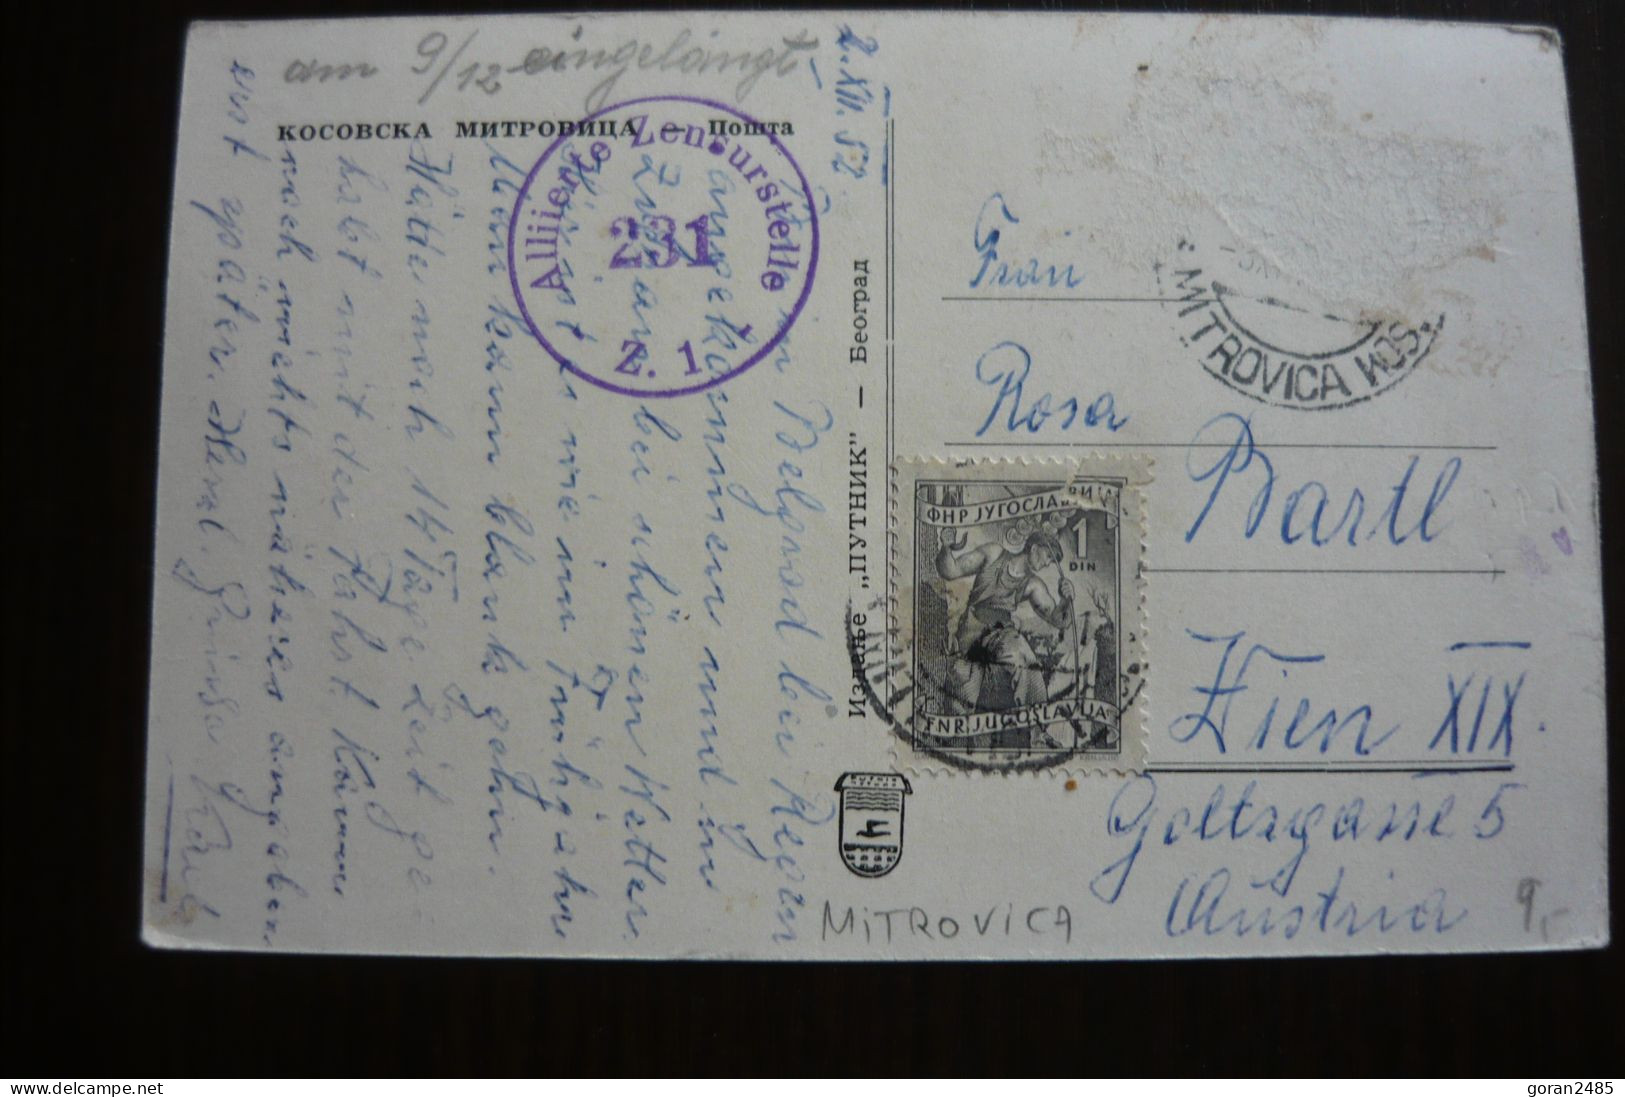 am 9/12 eingelangt
КОСОВСКА МИТРОВИЦА — Пошта
2. XII. 52.
Bin in Belgrad bei Regen
angekommen und in
Zvečane bei schönem Wetter.
Hier ist es wie im Frühjahr
Man kann blank gehn.
Hätte noch 14 Tage Zeit ge-
habt mit der Fahrt. Kann
noch nichts näheres angeben.
erst später. Herzl. Grüsse
Karl
Alliierte Zensurstelle
231
Z. 1
Издање „ПУТНИК” — Београд
4
Frau
Rosa
Bartl
Wien XIX.
Goltzgasse 5
Austria
MITROVICA KOS.
ФНР ЈУГОСЛАВИЈА
1
DIN
FNR JUGOSLAVIJA
MiTROVICA
9,-
goran2485